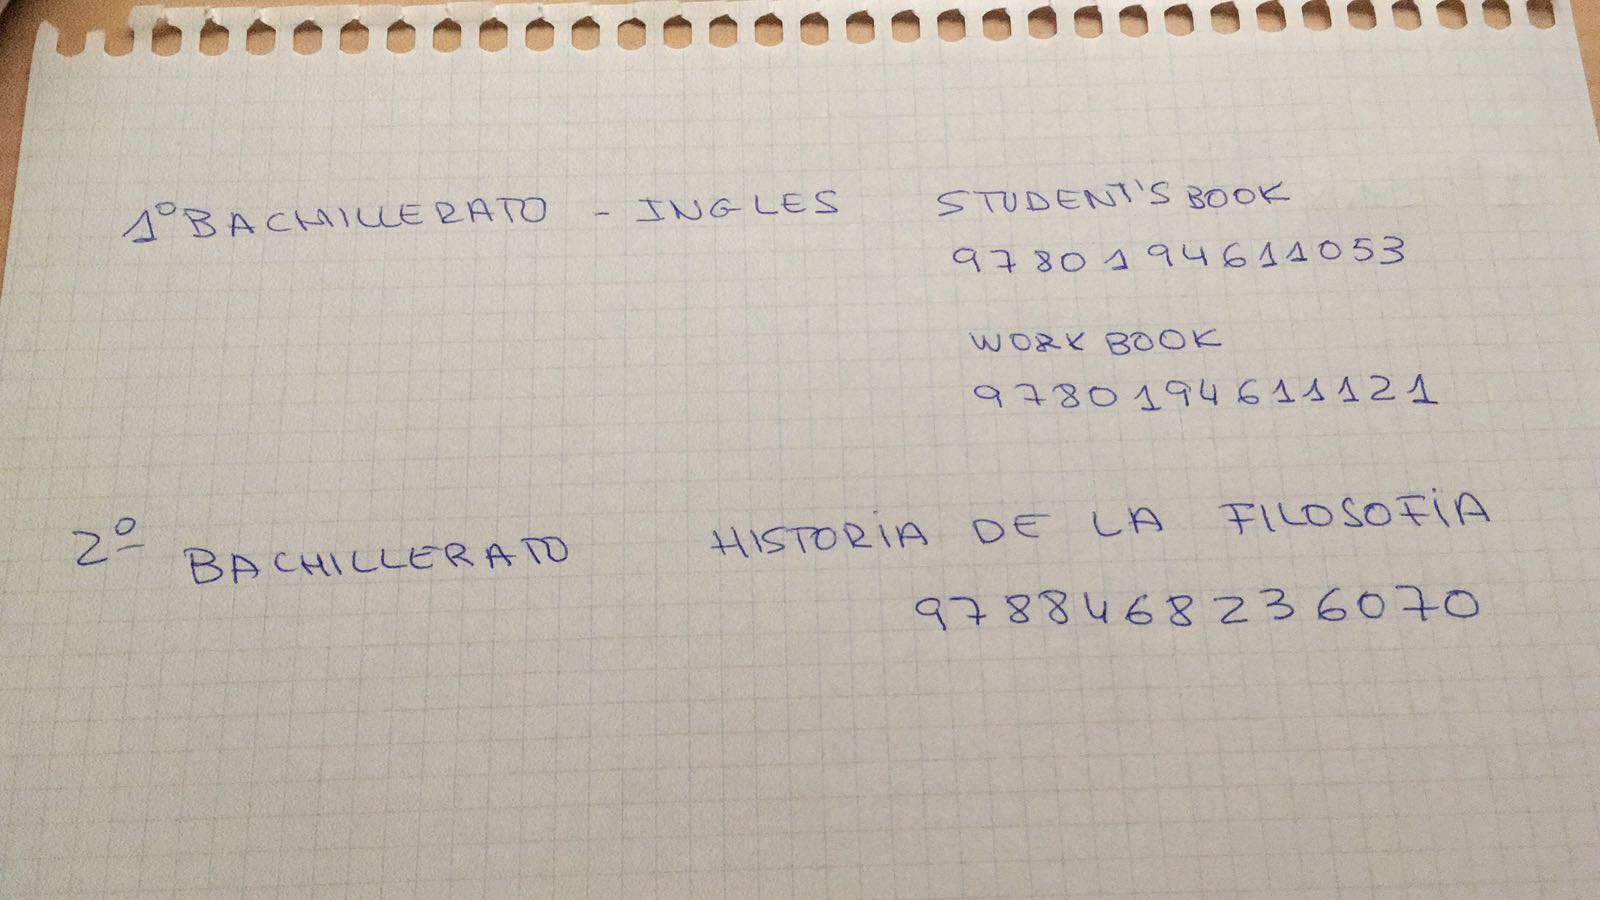 1º BACHILLERATO - INGLES STUDENT'S BOOK
9780194611053
WORK BOOK
9780194611121
2º BACHILLERATO HISTORIA DE LA FILOSOFIA
9788468236070